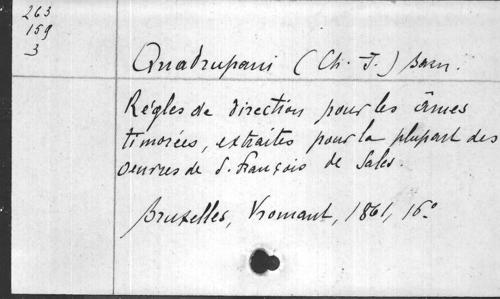 263
159
3
Quadrupani (Ch. J.) Barn.
Règles de direction pour les âmes
timorées, extraites pour la plupart des
Oeuvres de S. François de Sales.
Bruxelles, Vromant, 1861, 16°